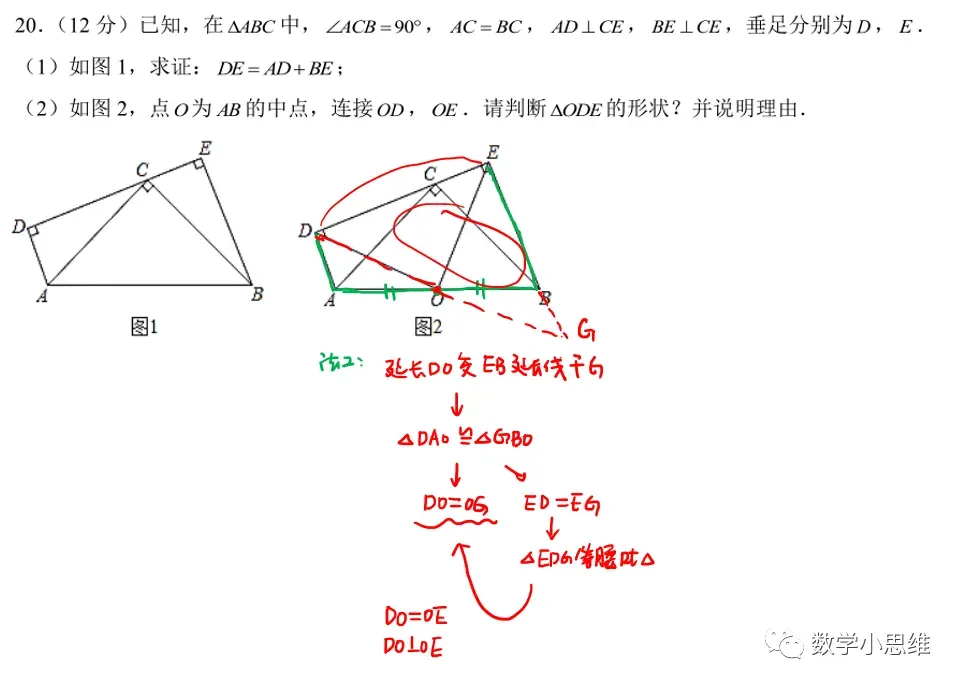 20.（12 分）已知，在ΔABC中，∠ACB=90°，AC=BC，AD⊥CE，BE⊥CE，垂足分别为D，E．
（1）如图 1，求证：DE=AD+BE；
（2）如图 2，点O为AB的中点，连接OD，OE．请判断ΔODE的形状？并说明理由．
E
C
D
A
B
图1
E
C
D
A
O
B
G
图2
法2：
延长DO交EB延长线于G
↓
△DAO≌△GBO
↓
DO=OG
ED=EG
↓
△EDG等腰Rt△
DO=OE
DO⊥OE
数学小思维